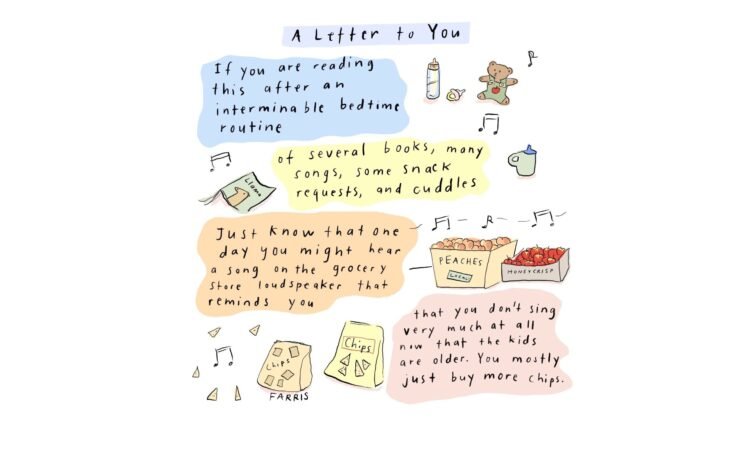 A Letter to You
If you are reading
this after an
interminable bedtime
routine
of several books, many
songs, some snack
requests, and cuddles
Llama
Just know that one
day you might hear
a song on the grocery
store loudspeaker that
reminds you
PEACHES
LOCAL
HONEYCRISP
that you don't sing
very much at all
now that the kids
are older. You mostly
just buy more chips.
Chips
Chips
FARRIS